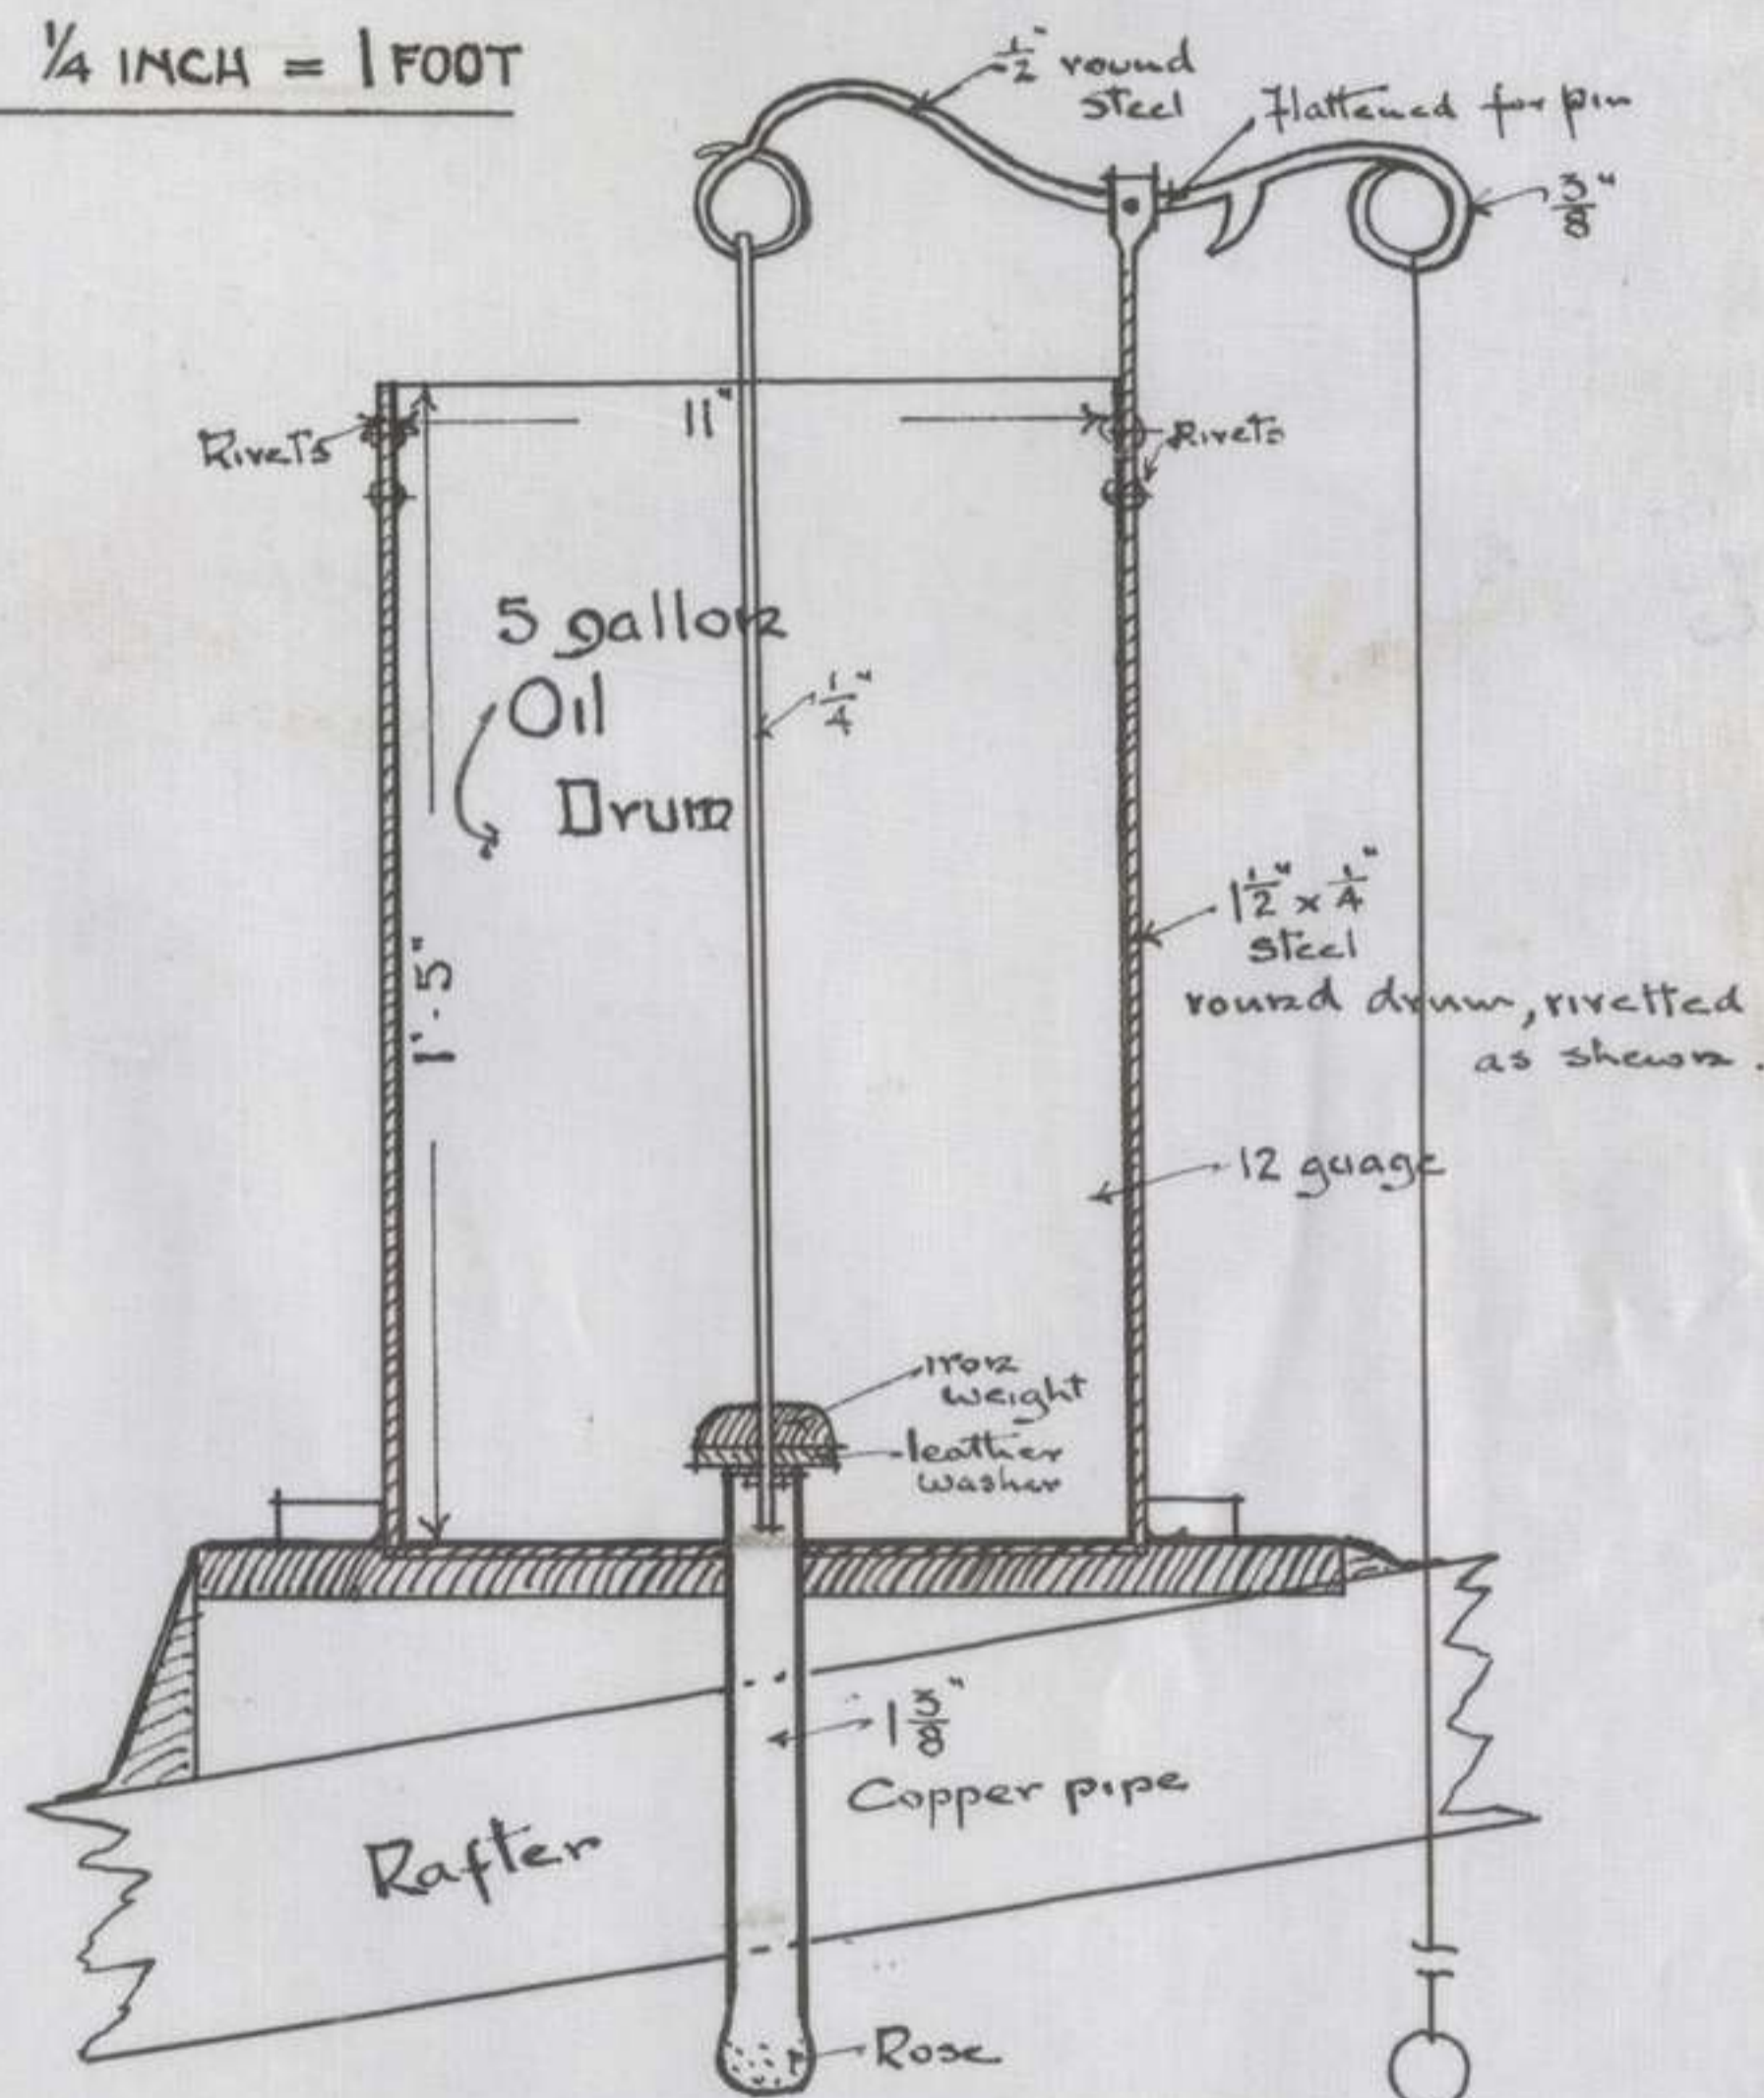 ¼ INCH = 1 FOOT
½" round
steel
flattened for pin
⅜"
11"
Rivets
Rivets
5 gallon
Oil
Drum
¼"
1½" x ¼"
steel
round drum, rivetted
as shewn.
1'-5"
12 guage
iron
weight
leather
washer
1⅜"
Copper pipe
Rafter
Rose